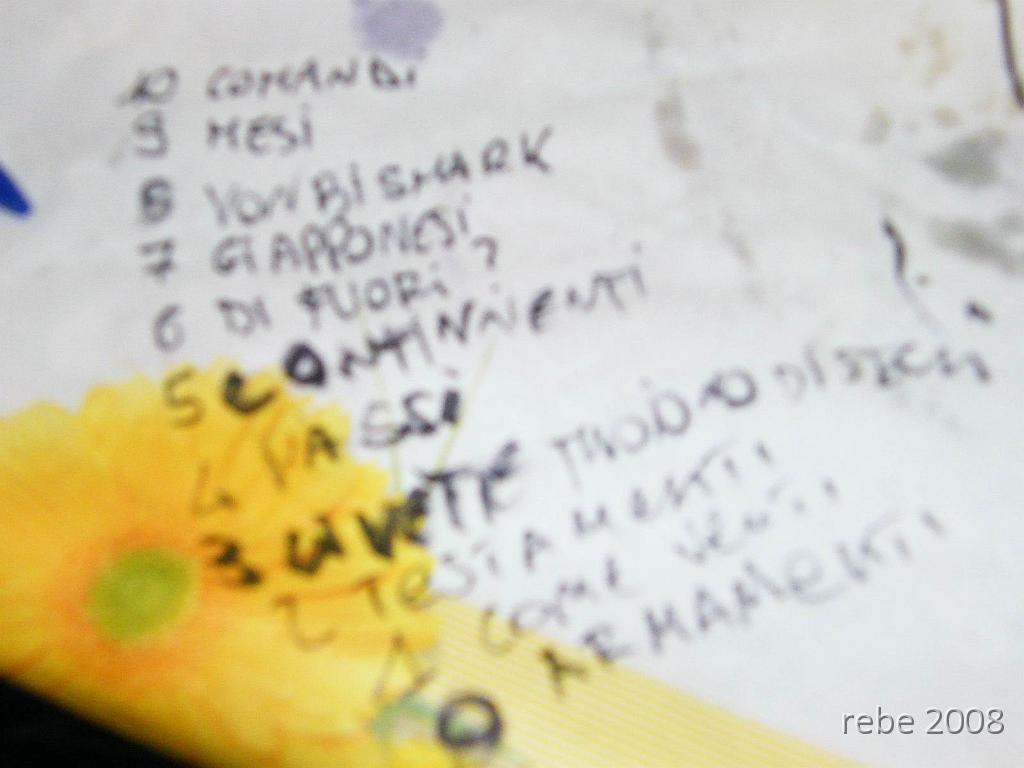 10 COMANDI
9 MESI
8 VON BISMARK
7 GIAPPONESI
6 DI FUORI ?
5 CONTINNENTI
4 PASSI
3 CIVETTE
2 TESTAMENTI
1 COME VENTI
0 ARMAMENTI
rebe 2008